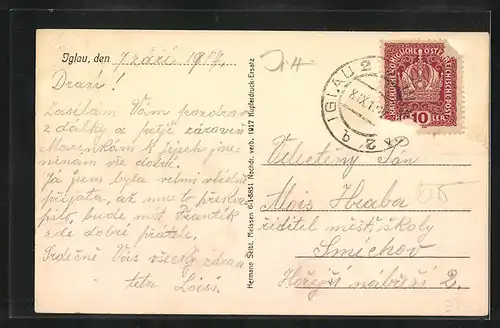 Iglau, den 7 září 1917.
Drazí!
Zasílám Vám pozdrav
z dálky a přeji zároveň
Mařenkám k jejich jme-
ninám vše dobré.
Já jsem byla velmi vlídně
přijata, až mne to překva-
pilo, bude mít František
zde dobré přátele.
Srdečně Vás všecky zdraví
teta Loisi.
Hermann Seibt, Meissen Nachdr. verb. 1917 Kupferdruck-Ersatz
IGLAU 2
KAISERLICHE KÖNIGLICHE ÖSTERREICHISCHE POST
10 HELLER
Velectěný Pán
Alois Hraba
řiditel měšť. školy
Smíchov
Hořejší nábřeží 2.